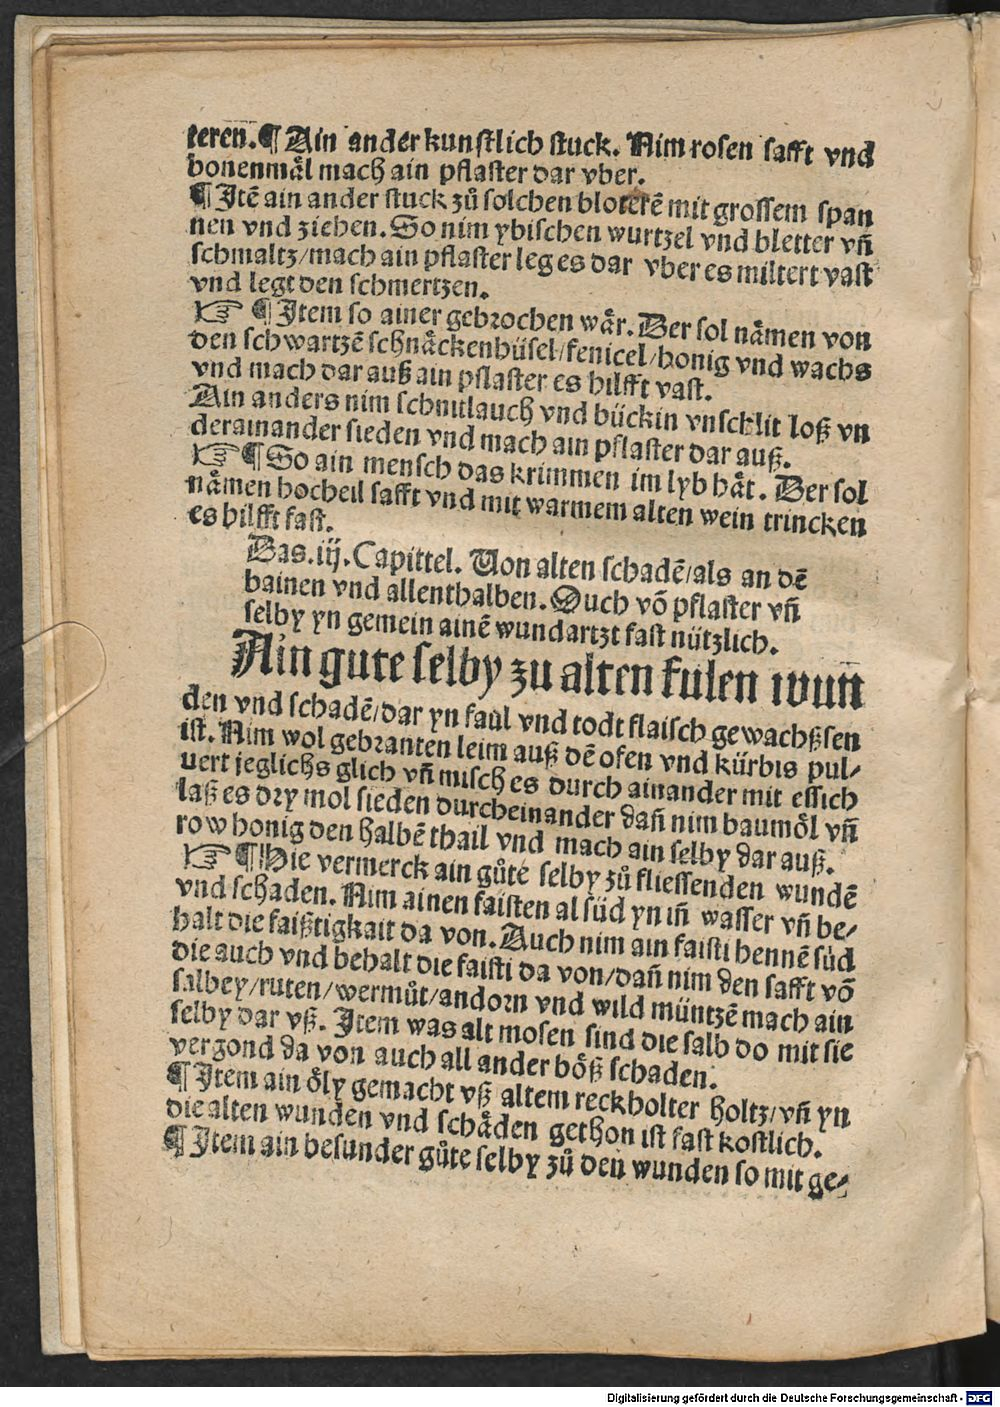 teren. ¶ Ain ander kunstlich stuck. Nim rosen safft vnd
bonenmaͤl mach ain pflaster dar vber.
¶ Jtē ain ander stuck zuͦ solchen bloterē mit grossem span
nen vnd ziehen. So nim ybischen wurtzel vnd bletter vn̄
schmaltz/mach ain pflaster leg es dar vber es miltert vast
vnd legt den schmertzen.
☞ ¶ Jtem so ainer gebrochen waͤr. Der sol naͤmen von
den schwartzē schnaͤckenhüsel/fenicel/honig vnd wachs
vnd mach dar auß ain pflaster es hilfft vast.
Ain anders nim schnitlauch vnd bückin vnschlit loß vn
derainander sieden vnd mach ain pflaster dar auß.
☞ ¶ So ain mensch das krimmen im lyb haͤt. Der sol
naͤmen hocheil safft vnd mit warmem alten wein trincken
es hilfft fast.
Das .iij. Capittel. Von alten schadē/als an dē
bainen vnd allenthalben. Ouch vō pflaster vn̄
selby yn gemein ainē wundartzt fast nützlich.
Ain gute selby zu alten fulen wun
den vnd schadē/dar yn faul vnd todt flaisch gewachßsen
ist. Nim wol gebranten leim auß dē ofen vnd kürbis pul⸗
uert jeglichs glich vn̄ misch es durch ainander mit essich
laß es dry mol sieden durcheinander dan̄ nim baumoͤl vn̄
row honig den halbē thail vnd mach ain selby dar auß.
☞ ¶ Hie vermerck ain guͦte selby zuͦ fliessenden wundē
vnd schaden. Nim ainen faisten al süd yn in̄ wasser vn̄ be⸗
halt die faißtigkait da von. Auch nim ain faisti hennē süd
die auch vnd behalt die faisti da von/dan̄ nim den safft vō
salbey/ruten/wermuͦt/andorn vnd wild müntzē mach ain
selby dar vß. Item was alt mosen sind die salb do mit sie
vergond da von auch all ander boͤß schaden.
¶ Jtem ain oͤly gemacht vß altem reckholter holtz/vn̄ yn
die alten wunden vnd schaͤden gethon ist fast kostlich.
¶ Jtem ain besunder guͦte selby zuͦ den wunden so mit ge⸗
Digitalisierung gefördert durch die Deutsche Forschungsgemeinschaft - DFG